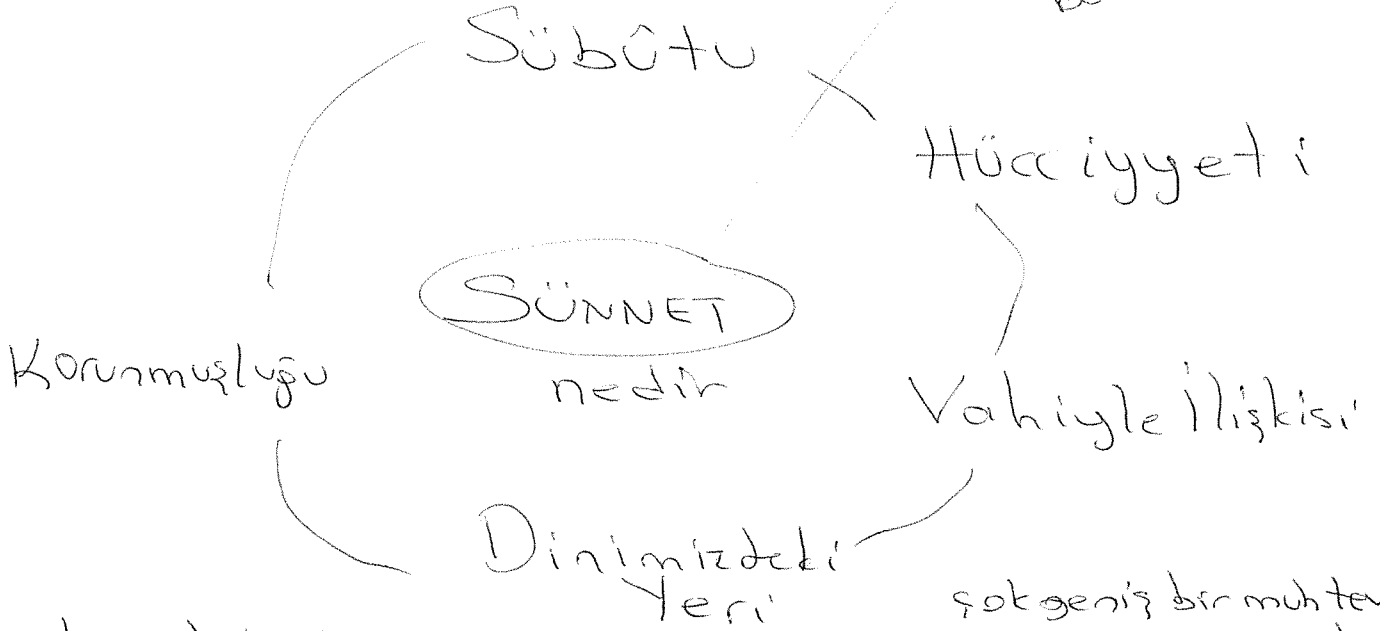 Sübûtu
Hücciyyeti
SÜNNET
nedir
Korunmuşluğu
Vahiyle İlişkisi
Dinimizdeki
Yeri
çok geniş bir muhtev